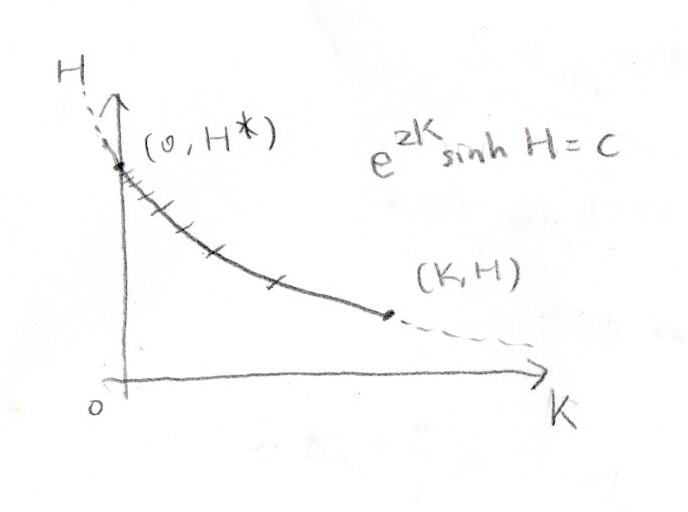 H
(0, H*)
e^{2K} sinh H = C
(K, H)
0
K